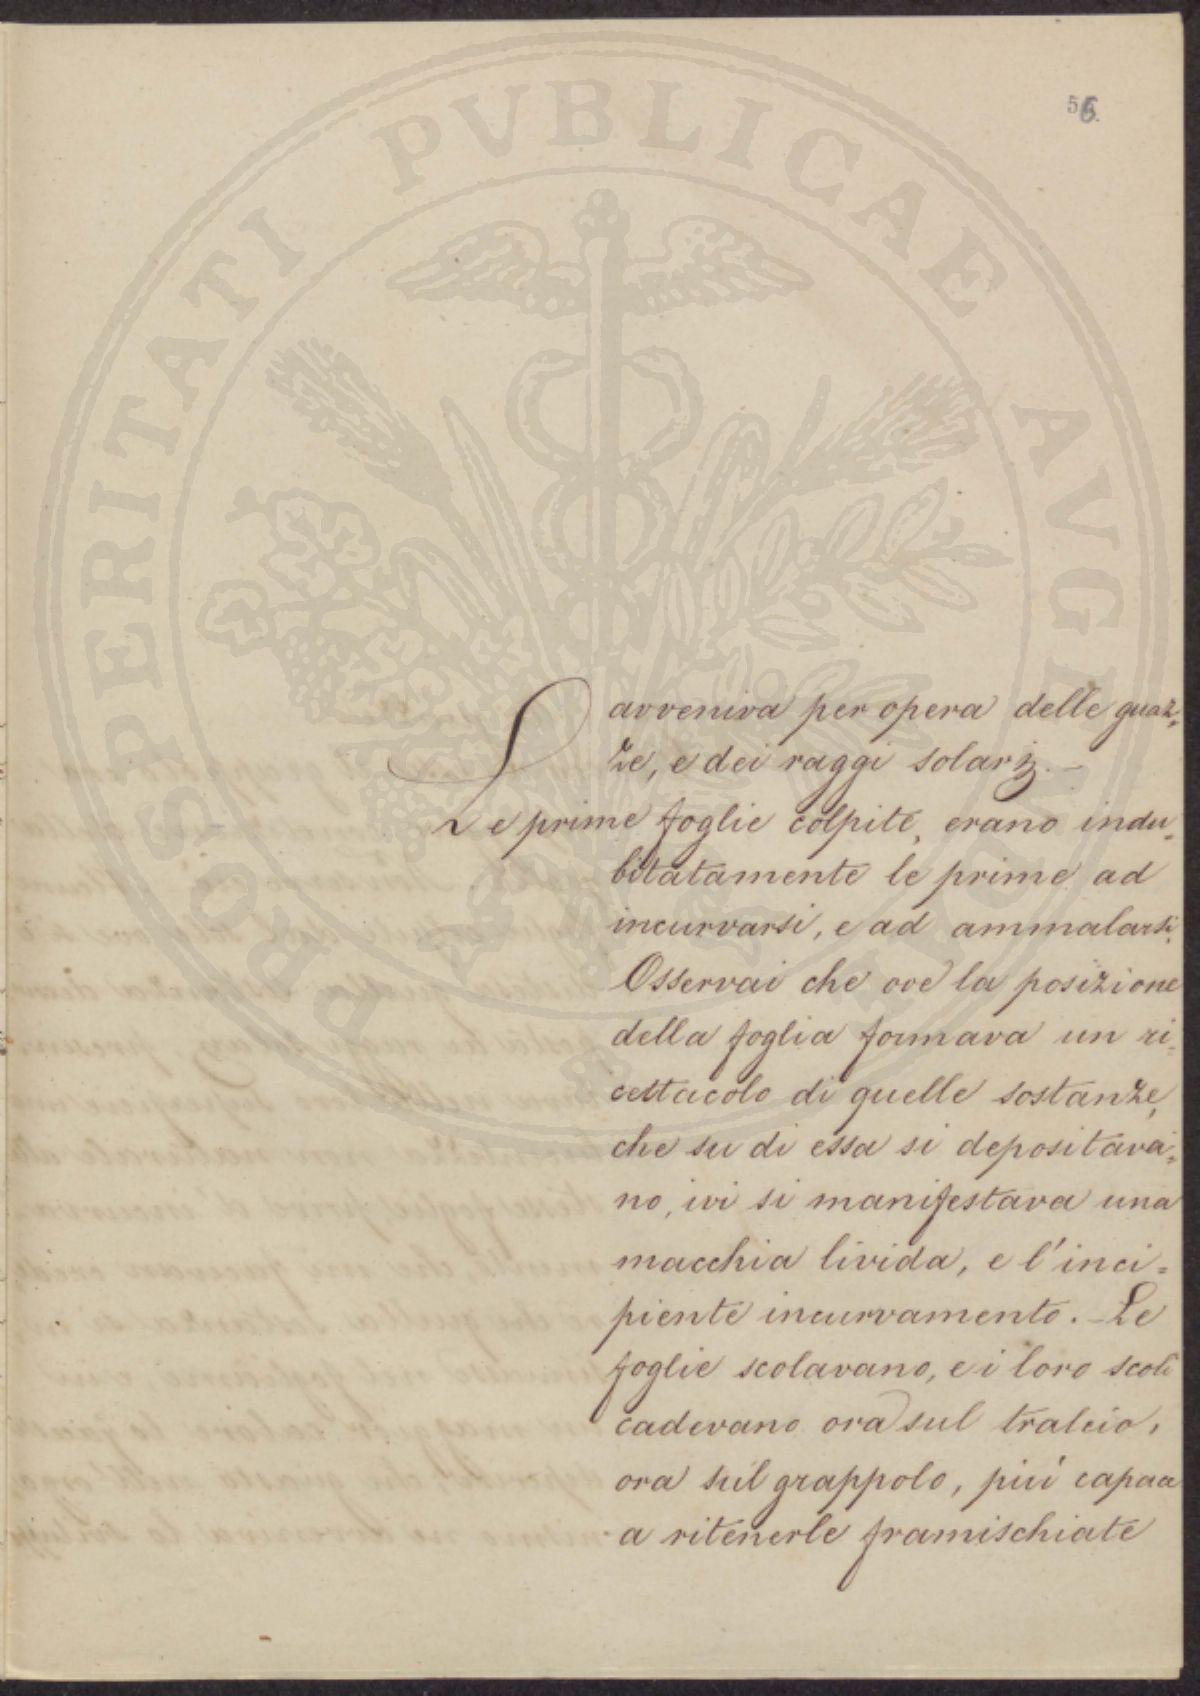 56.
PROSPERITATI PVBLICAE AVGENDAE
avveniva per opera delle guaz=
ze, e dei raggi solari. –
Le prime foglie colpite, erano indu=
bitatamente le prime ad
incurvarsi, e ad ammalarsi.
Osservai che ove la posizione
della foglia formava un ri=
cettacolo di quelle sostanze,
che su di essa si depositava=
no, ivi si manifestava una
macchia livida, e l'inci=
piente incurvamento. – Le
foglie scolavano, e i loro scoli
cadevano ora sul tralcio,
ora sul grappolo, più capace
a ritenerle framischiate